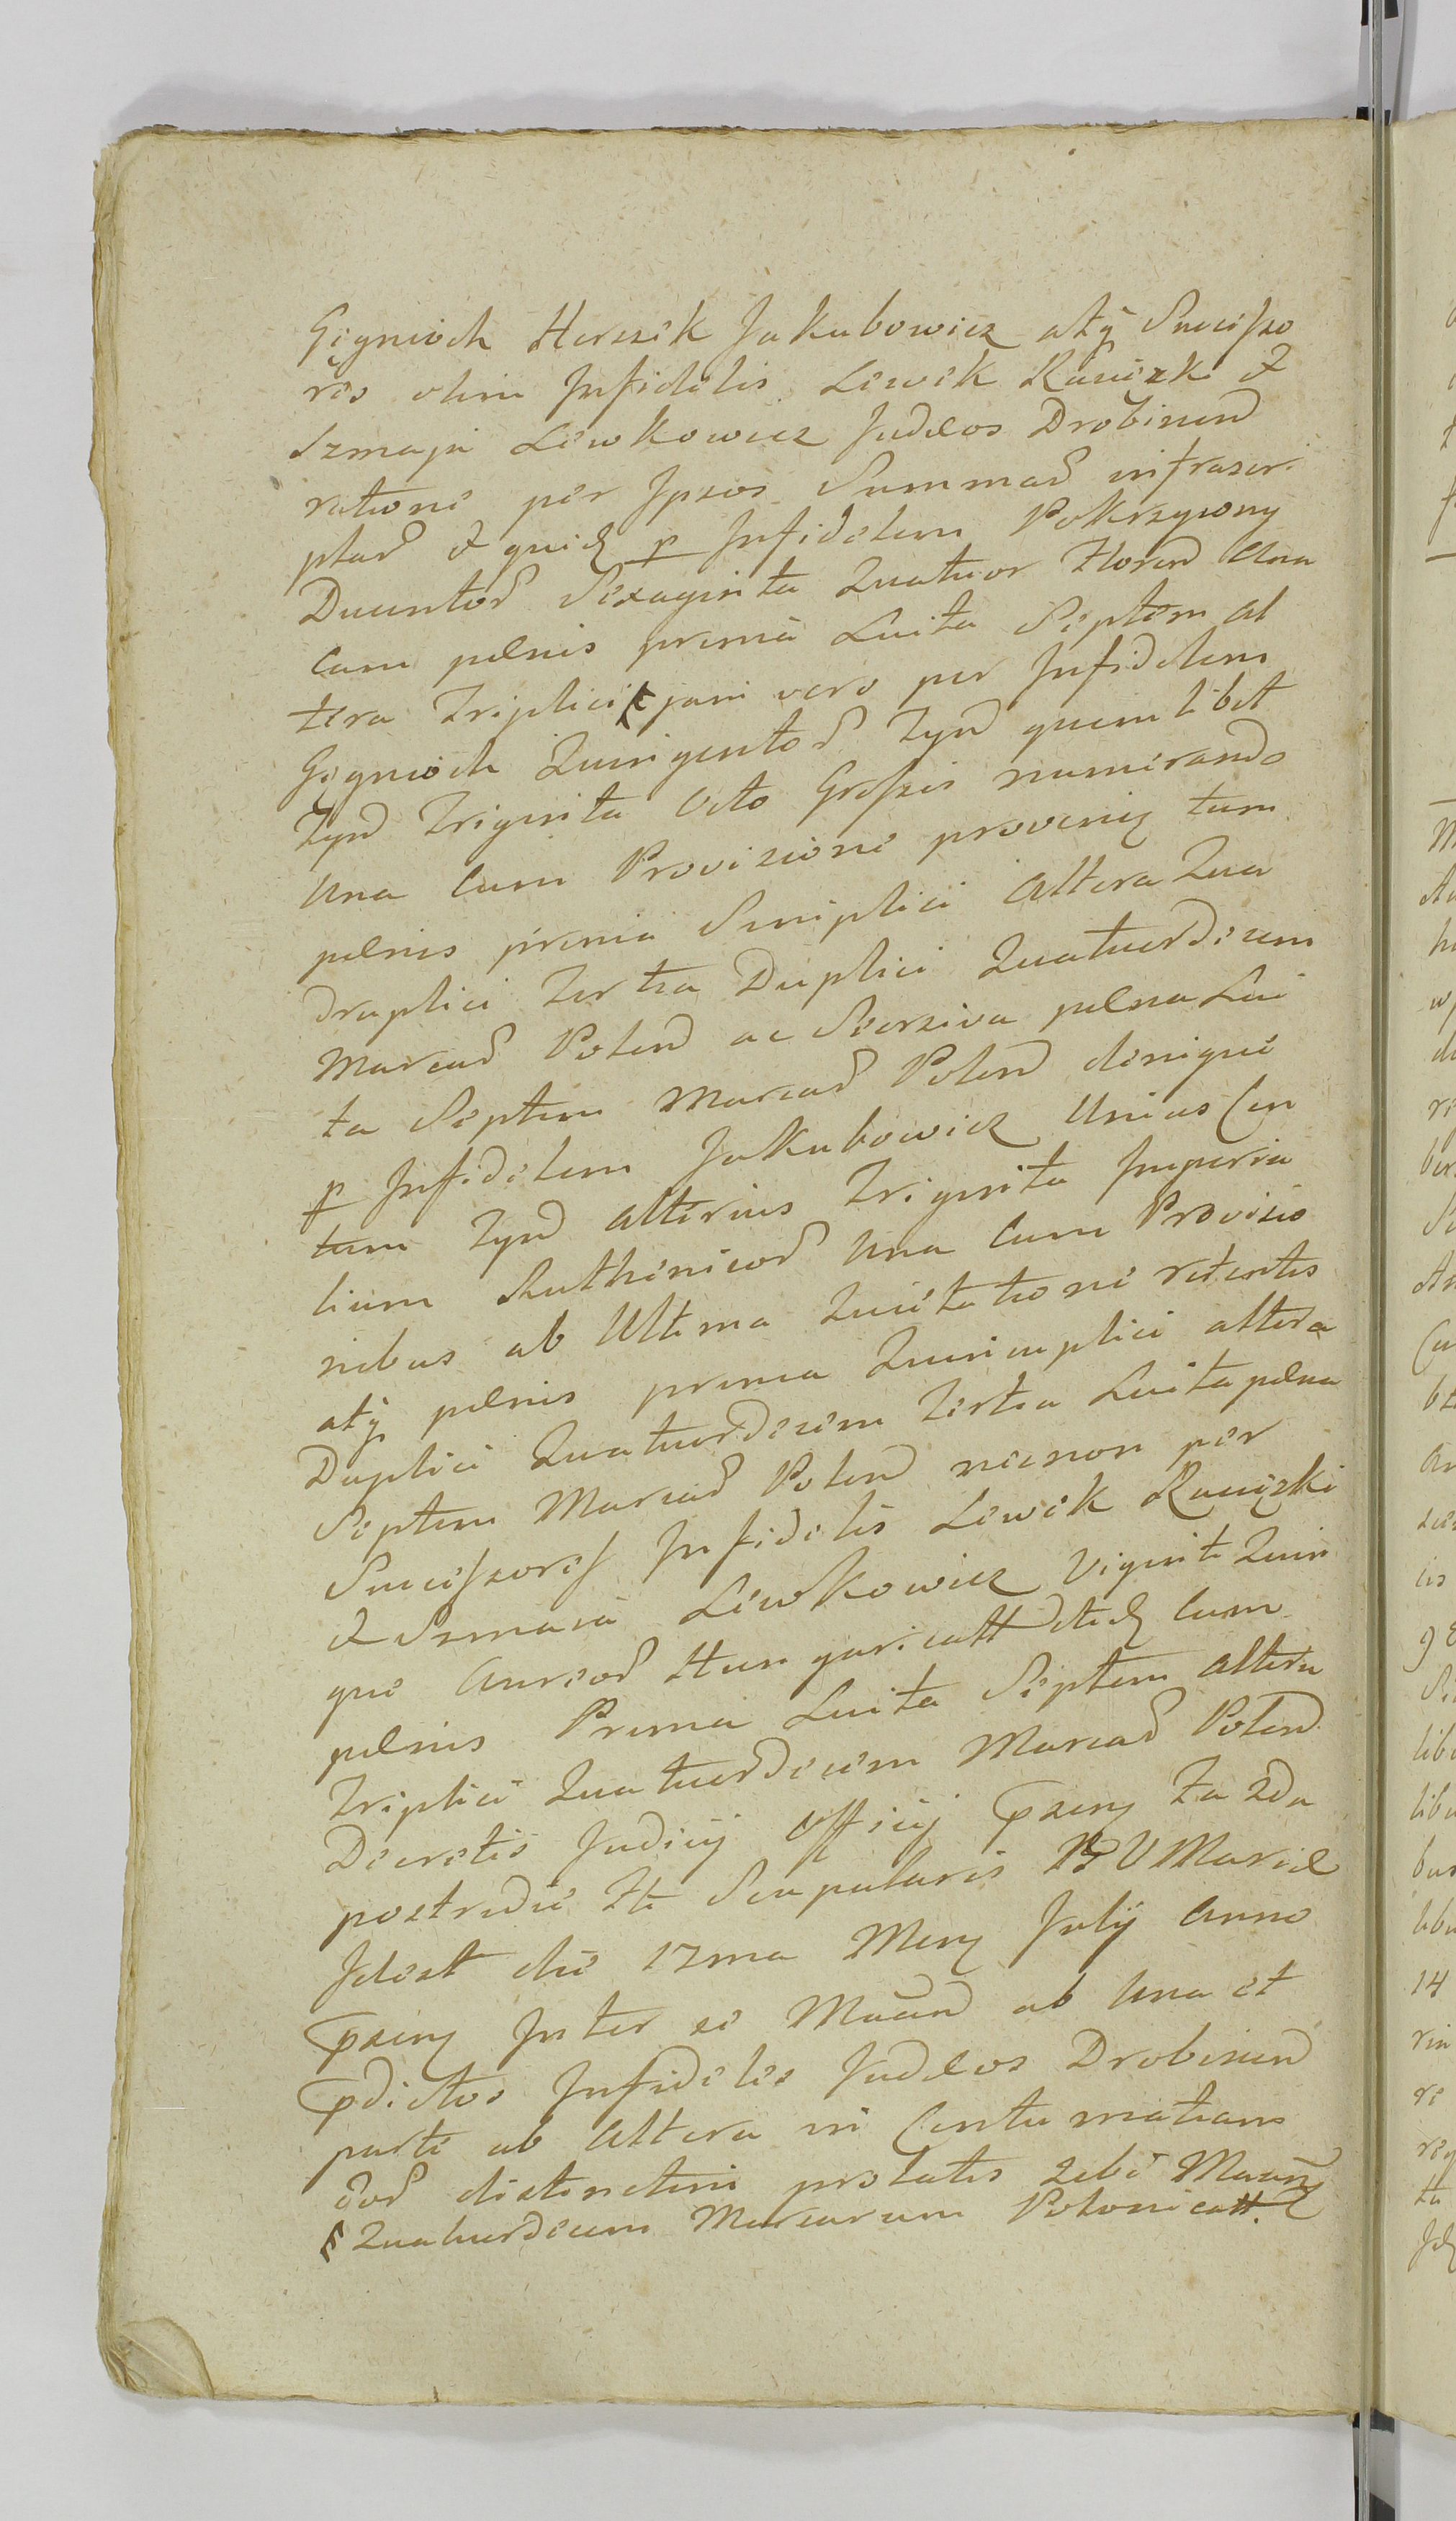 Gięgnioch Herszik Jakubowicz atq Succeszo
res olim Infidelis Lewek Raweczki &
Szmaja Lewkowicz Judæos Drobinen
ratione per Ipsos Summar infrascri
ptar & quid p Infidelem Pokrzywny
Ducentor Sexaginta Quatuor Floren Una
Cum pænis prima Luita Septem al
tera Triplici jam vero per Infidelem
Gegnioch Quingentor Tyn quem libet
Tyn Triginta Octo Groszis numerando
Una Cum Provisione proveni tum
pænis prima Simplici Altera Qua
druplici Tertia Duplici Quatuordecim
Marcar Polon ac Seorsiva pæna Lui
ta Septem Marcar Polon denique
p Infidelem Jakubowicz Unius Cen
tum Tyn Alterius Triginta Imperia
lium Ruthenicor Una Cum Provisio
nibus ab Ultima Quietatione retentis
atq pænis prima Quincuplici altera
Duplici Quatuordecim Tertia Luita pæna
Septem Marcar Polon necnon per
Succeszores Infidelis Lewek Raweczki
& Szmaia Lewkowicz Viginti Quin
que Aureor Hungaricall Cum
pænis Prima Luita Septem Altera
Triplici Quatuordecim Marcar Polon
Decretis Judicij Officij psen fa 2da
postridie fti Scapularis BVMariæ
Idest die 17ma Men Julij Anno
psen Inter se Maan ab Una et
pdictos Infideles Judæos Drobinen
parte ab Altera in Contumatiam
Eor distinctim prolatis sebe Maan
Quatuordecim Marcarum Polonicall